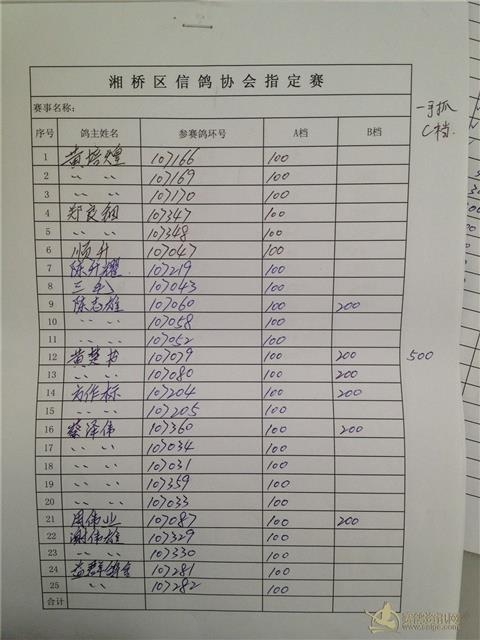 湘桥区信鸽协会指定赛
赛事名称:
一手抓
C档.
序号 鸽主姓名 参赛鸽环号 A档 B档
1 黄培煌 107166 100
2 〃 〃 107169 100
3 〃 〃 107170 100
4 郑良钢 107347 100
5 〃 〃 107348 100
6 顺升 107047 100
7 陈升耀 107219 100
8 三 107043 100
9 陈志雄 107060 100 200
10 〃 〃 107058 100
11 〃 〃 107052 100
12 黄楚 107079 100 200 500
13 〃 〃 107080 100 200
14 方作标 107204 100 200
15 〃 〃 107205 100
16 蔡泽伟 107360 100 200
17 〃 〃 107034 100
18 〃 〃 107031 100
19 〃 〃 107359 100
20 〃 〃 107033 100
21 周伟业 107087 100 200
22 谢伟雄 107329 100
23 〃 〃 107330 100
24 益群鸽舍 107281 100
25 〃 107282 100
合计
赛鸽资讯网